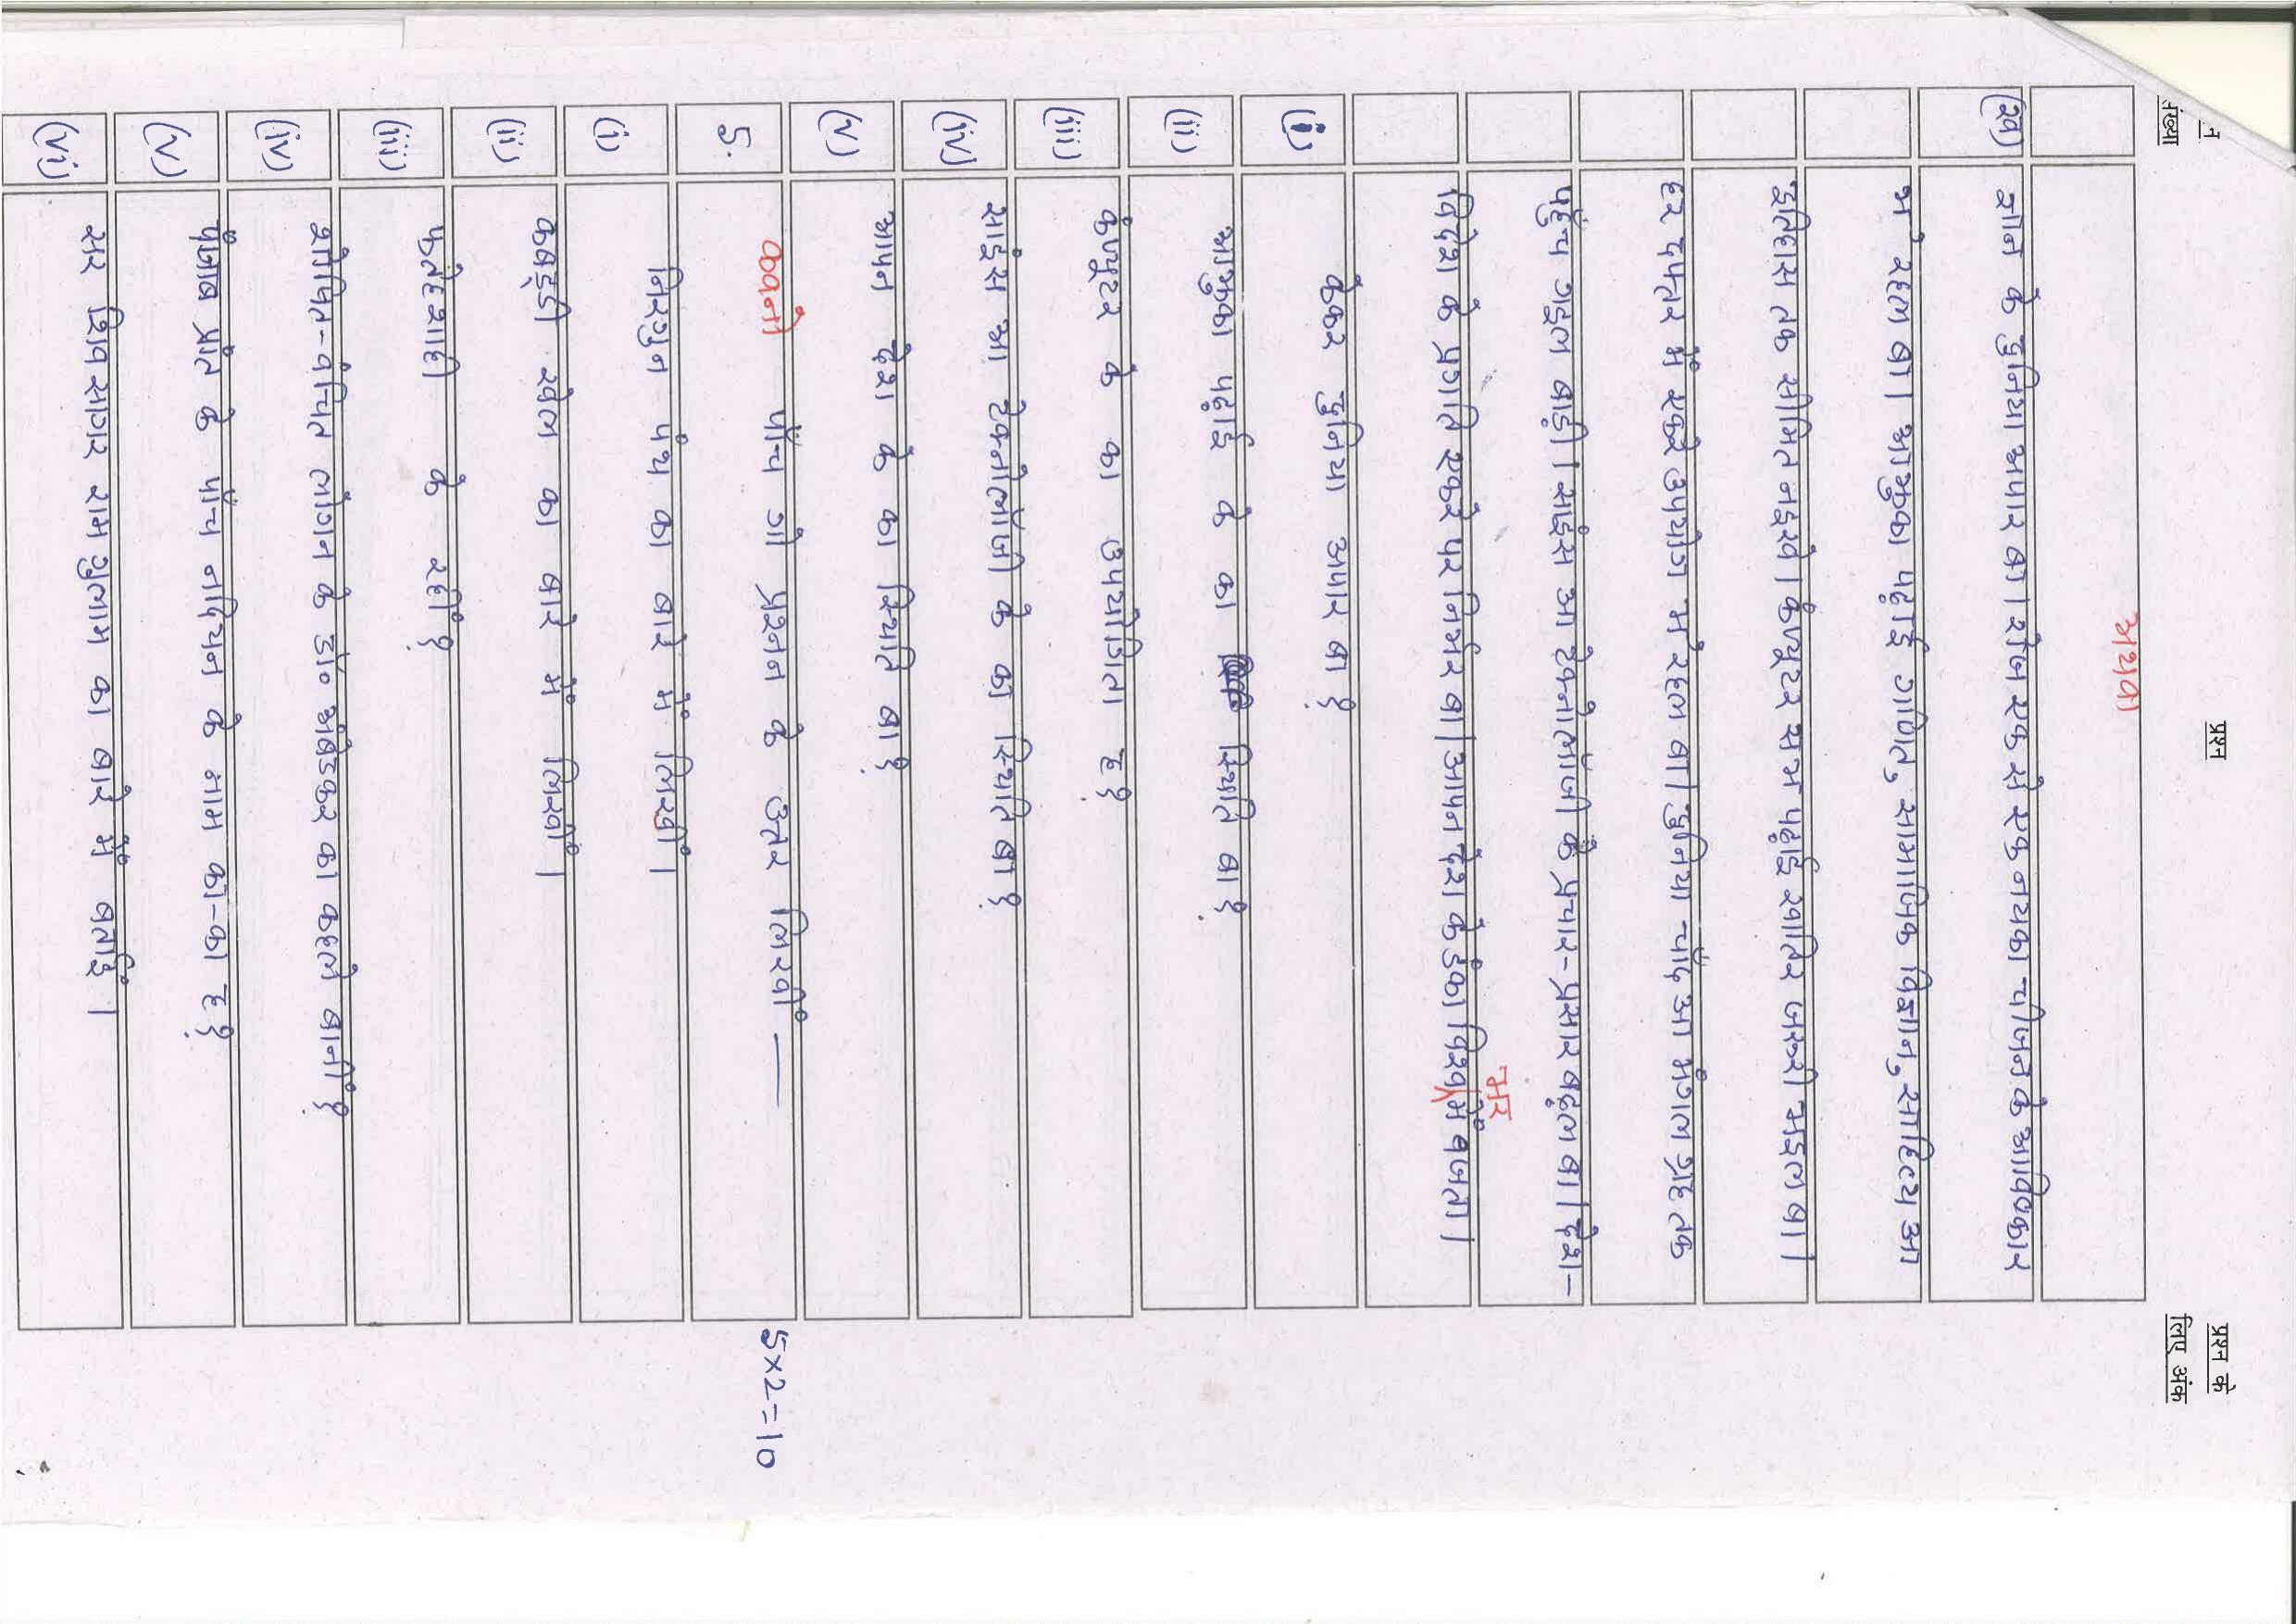 न
संख्या
प्रश्न
प्रश्न के
लिए अंक
अथवा
(ख) ज्ञान के दुनिया अपार बा। रोज एक से एक नयका चीजन के आविष्कार
में रहल बा। आजुका पढ़ाई गणित, सामाजिक विज्ञान, साहित्य आ
इतिहास तक सीमित नइखे। कंप्यूटर सभ पढ़ाई खातिर जरूरी भइल बा।
हर दफ्तर में एकरे उपयोग में रहल बा। दुनिया चाँद आ मंगल ग्रह तक
पहुँच गइल बाड़ी। साइंस आ टेक्नोलॉजी के प्रचार-प्रसार बढ़ल बा। देश-
विदेश के प्रगति एकरे पर निर्भर बा। आपन देश के डंका विश्व भर में बजता।
(i) केकर दुनिया अपार बा?
(ii) आजुका पढ़ाई के का स्थिति बा?
(iii) कंप्यूटर के का उपयोगिता ह?
(iv) साइंस आ टेक्नोलॉजी के का स्थिति बा?
(v) आपन देश के का स्थिति बा?
5. कवनो पाँच गो प्रश्नन के उत्तर लिखीं — 5×2=10
(i) निरगुन पंथ का बारे में लिखीं।
(ii) कबड्डी खेल का बारे में लिखीं।
(iii) फतेहशाही के रहीं?
(iv) शोषित-वंचित लोगन के डॉ० अंबेडकर का कहले बानीं?
(v) पंजाब प्रांत के पाँच नदियन के नाम का-का ह?
(vi) सर शिव सागर राम गुलाम का बारे में बताईं।